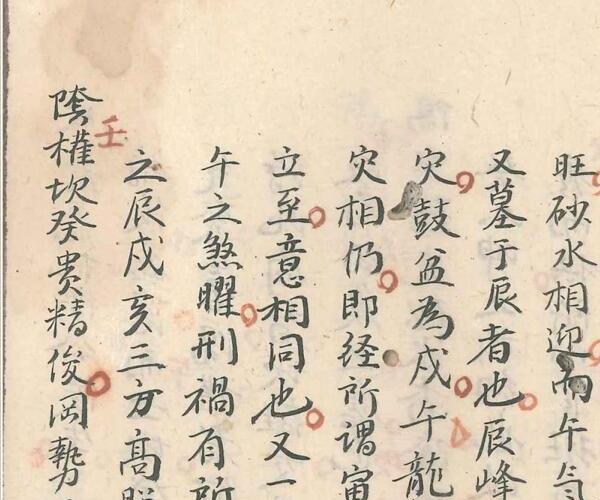 旺砂水相迎而午氣
又墓于辰者也辰峰
灾鼓盆為戍午龍
灾相仍即経所謂寅
立至意相同也又一
午之煞曜刑禍有所
之辰戍亥三方高
陰權坎癸貴精俊岡勢
壬